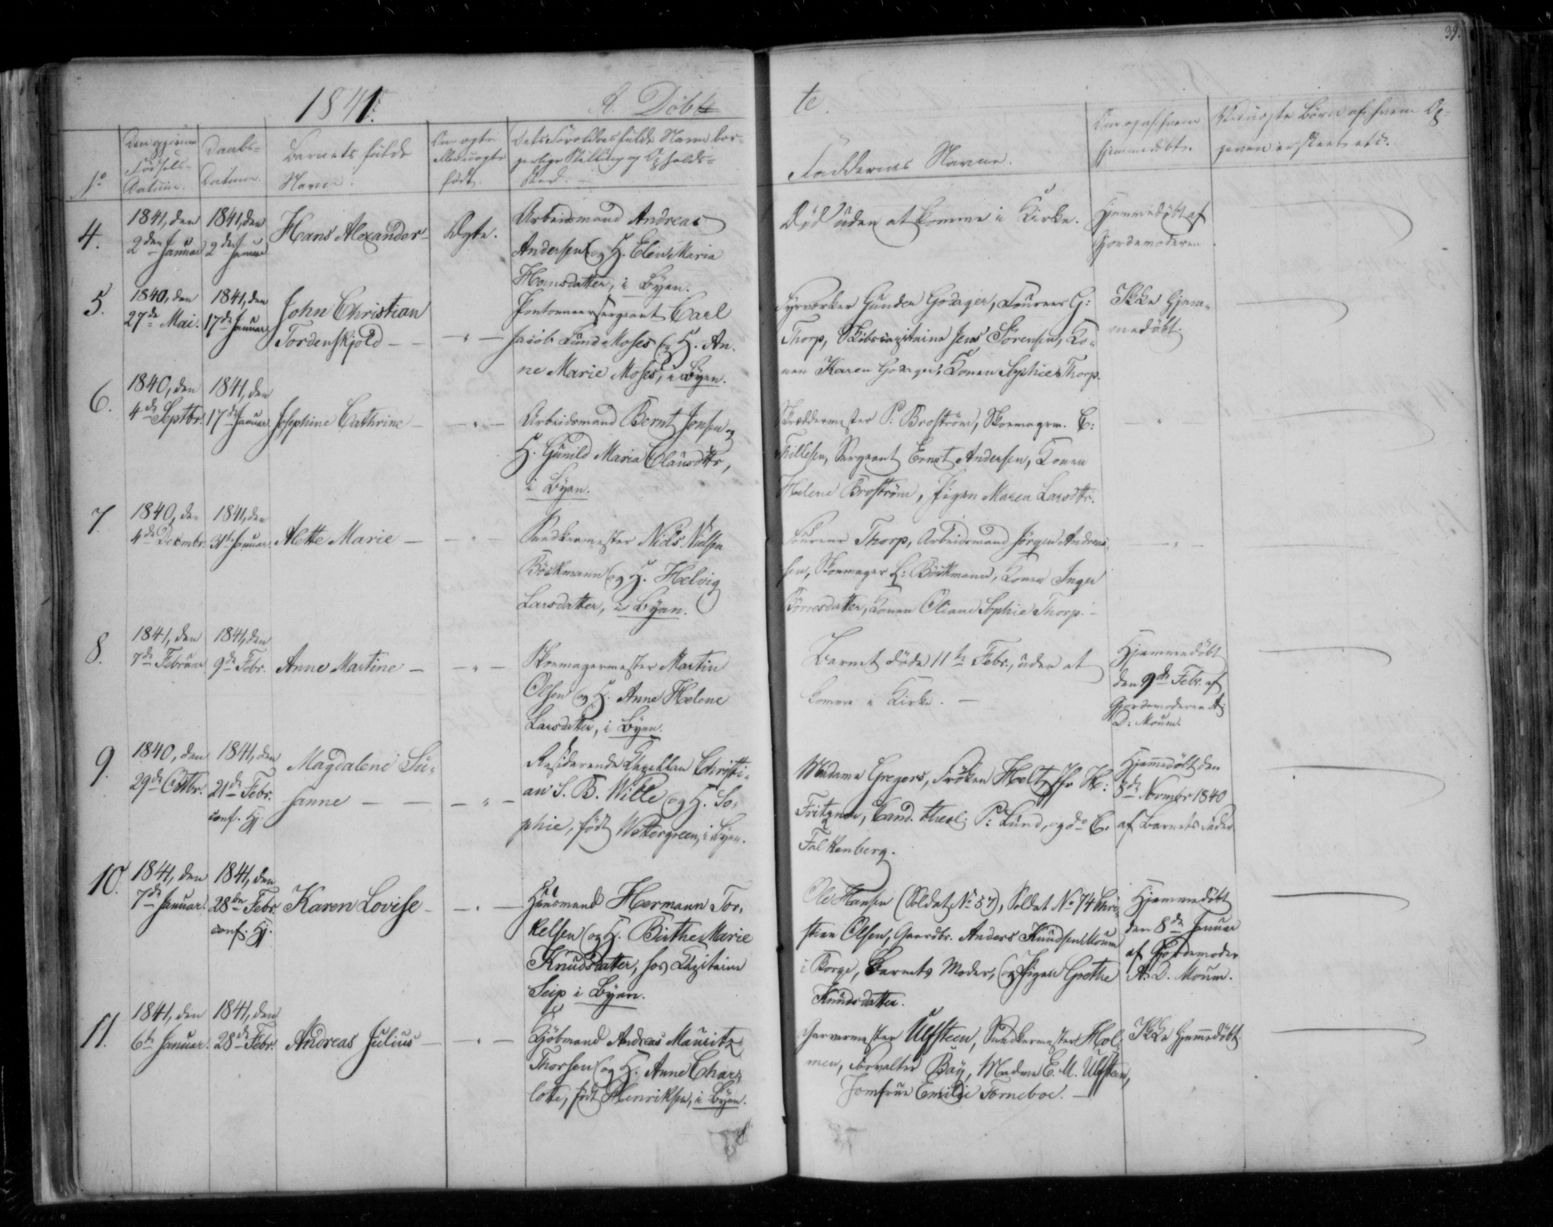 39.
1841.
A. Döbte
te.
No
Den opgivne Födsels-Datum.
Daabs-Datum.
Barnets fulde Navn.
Om ægte
Uægte
födt.
Forældres fulde Navn bor-
gerlige Stilling og Opholds-
sted.
Faddernes Navne.
Om og af hvem
hjemmedöbt.
4.
1841, den
2den Januar
1841, den
2den Januar
Hans Alexander
Ægte.
Arbeidsmand Andreas
Andersen og H. Elen Maria
Hansdatter, i Byen.
Död uden at komme i Kirke.
Hjemmedöbt af
Gjordemoderen
5.
1840, den
27de Mai.
1841, den
17de Januar
John Christian
Tordenskjold
Pontonneersergeant Carl
Jacob Lund Moses og H. An-
ne Marie Moses, i Byen.
Thorp, Skibscapitaine Jens Sörensen, Ko-
nen Karen Konen Sophie Thorp.
Ikke hjem-
medöbt.
6.
1840, den
4de Septbr.
1841, den
17de Januar
Josephine Cathrine
Arbeidsmand Bernt Jensen og
H. Gunild Maria Clausdtr,
i Byen.
Skreddermester P. Broström, Skomagerm. C:
Tollesen, Sergeant Ernst Andersen, Konen
Helene Broström, Pigen Maren Larsdtr.
7
1840, den
4de Decembr.
1841, den
Januar.
Alette Marie
Snedkermester Niels Nielsen
Böckmann og H. Helvig
Larsdatter, i Byen.
Thorp, Arbeidsmand Jörgen Andreas-
sen, Skomager L: Böckmann, Konen Inger
Konen Oliane Sophie Thorp.
8.
1841, den
7de Februar
1841, den
9de Febr.
Anne Martine
Skomagermester Martin
Olsen og H. Anne Helene
Larsdatter, i Byen.
Barnet döde 11te Febr., uden at
komme i Kirke.
Hjemmedöbt
den 9de Febr. af
Gjordemoderen A:
D: Moum.
9.
1840, den
29de Octbr.
1841, den
21de Febr.
conf. Hj.
Magdalene Su-
sanne
Residerende Capellan Christi-
an S. B. Wille og H. So-
phie, födt Wettergreen, i Byen.
Madame Gregers, Fröken Holtz, Hr H:
Fritzner, Cand. theol: P: Lund, og do C.
Falkenberg.
Hjemmedöbt den
Novembr 1840
af Barnets Fader
10.
1841, den
7de Januar.
1841, den
28de Febr.
conf. Hj.
Karen Lovise
Huusmand Hermann Tor-
kelsen og H. Birthe Marie
Knudsdatter, hos Capitaine
Seip i Byen.
Ole Hansen (Soldat No 57), Soldat No 74 Chri-
stian Olsen, Gaardbr. Anders Knudsen Moum
i Borge, Barnets Moder, og Pigen Grethe
Knudsdatter.
Hjemmedöbt
den 8de Januar
af Gjordemoder
A. D. Moum.
11.
1841, den
6te Januar.
1841, den
28de Febr.
Andreas Julius
Kjöbmand Andreas Mauritz
Thorsen og H. Anne Char-
lotte, födt Henriksen, i Byen.
Garvermester Ulfsteen, Snedkermester Hol-
men, Forvalter Bay, Madme C. M. Ulfsteen,
Jomfrue Emilie Torneboe.
Ikke hjemmedöbt